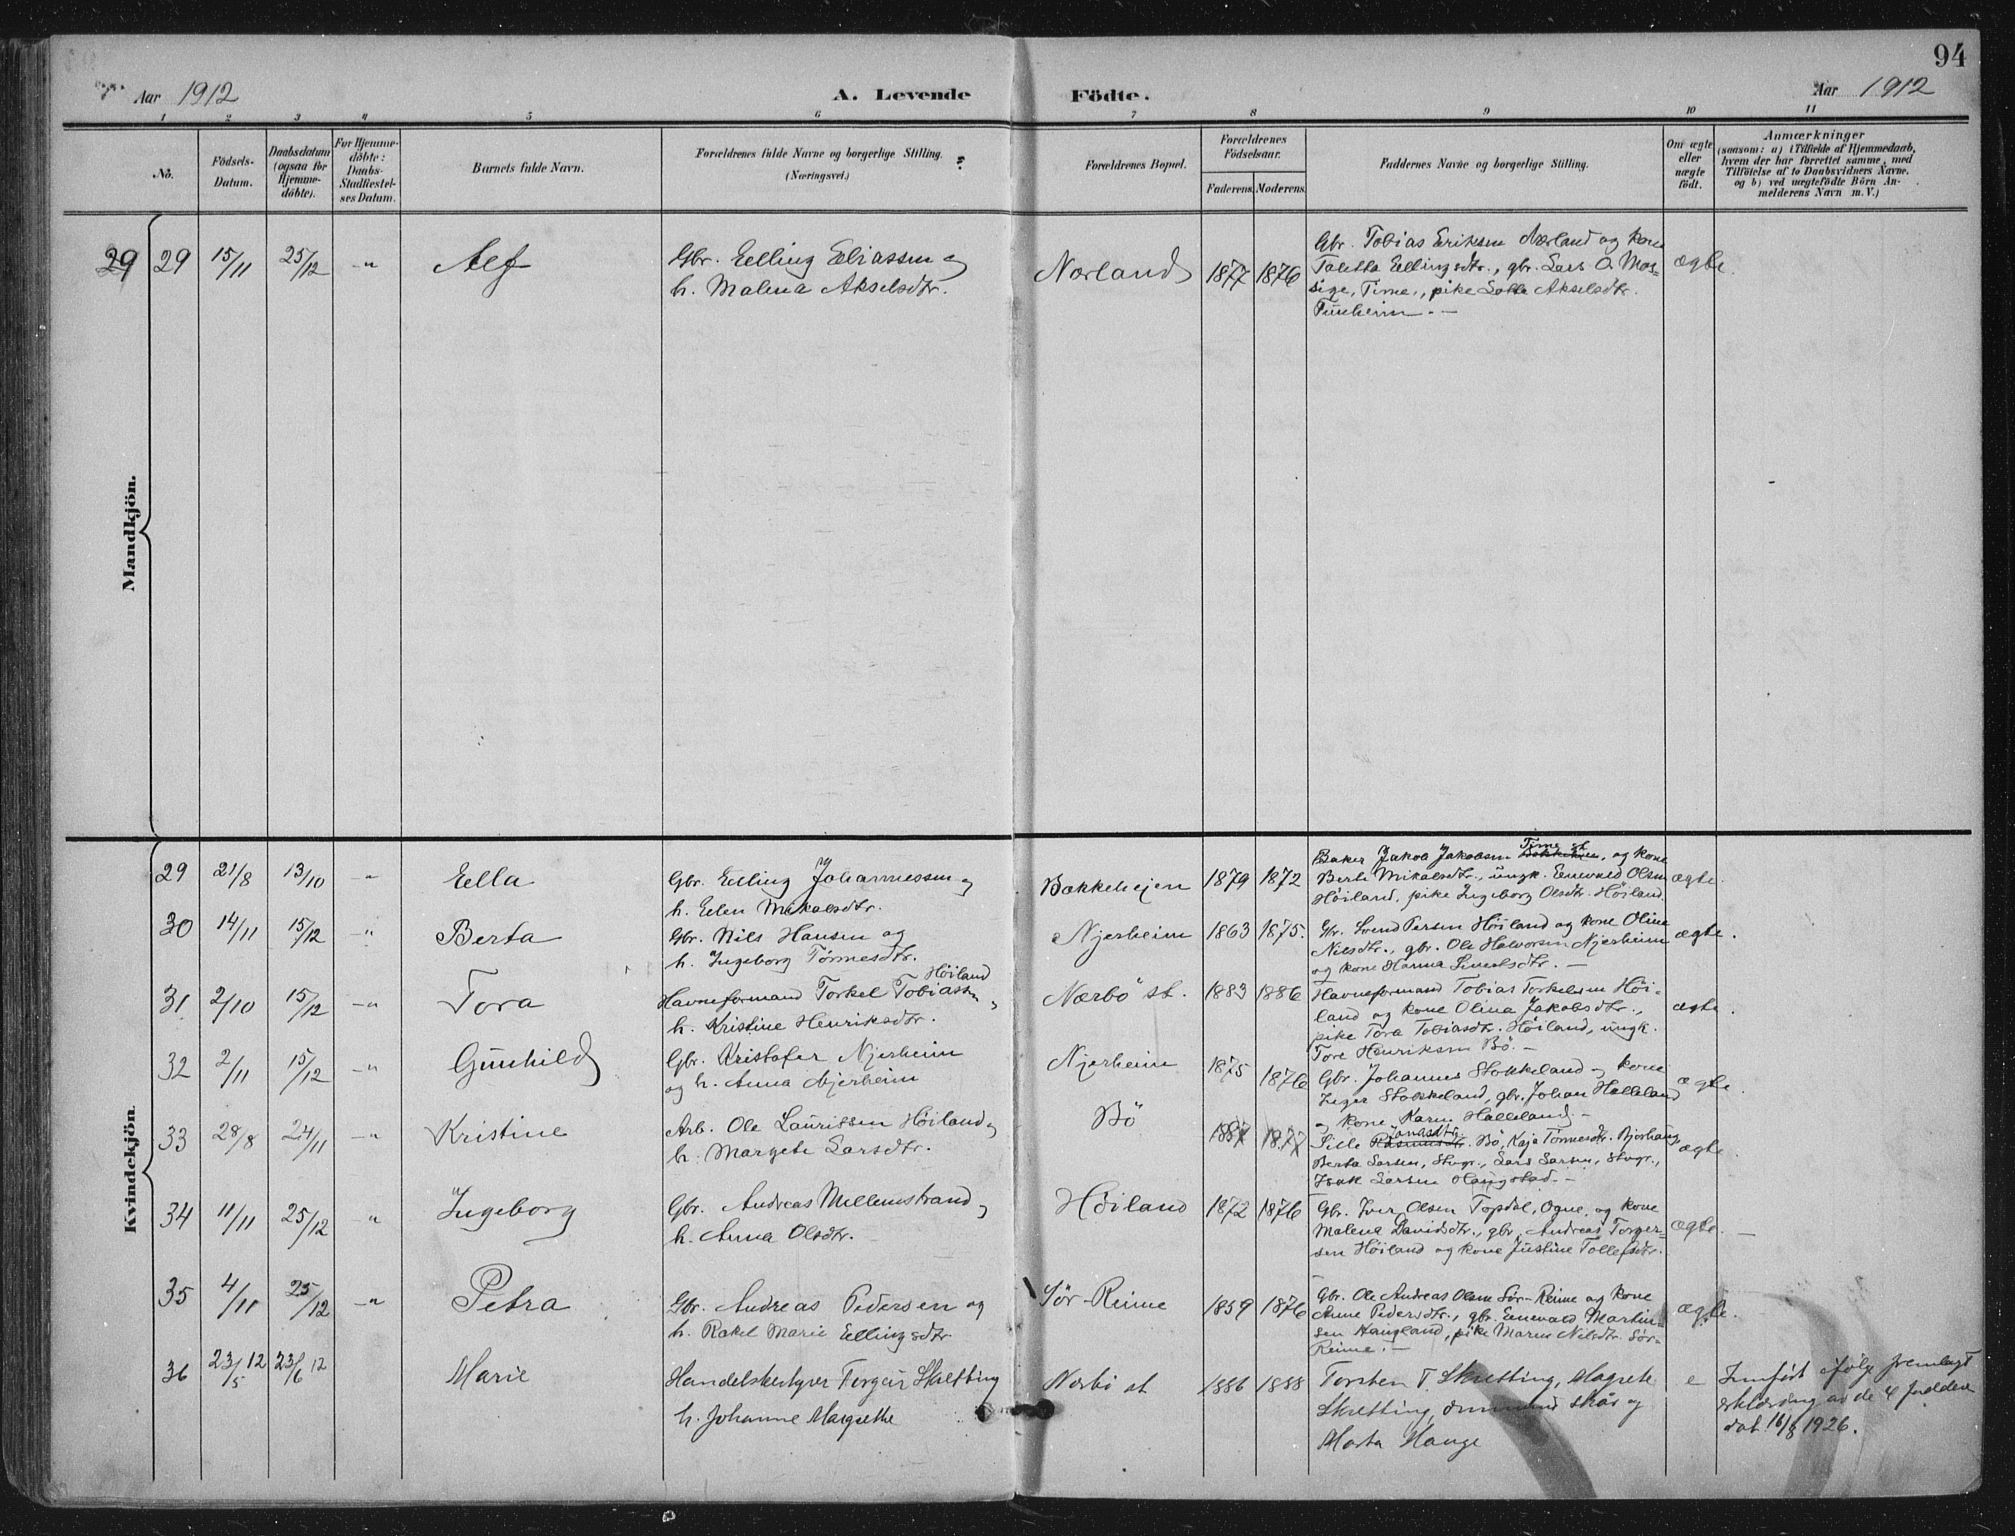 94
Aar 1912 A. Levende Födte. Aar 1912
1 2 3 4 5 6 7 8 9 10 11
No.
Födsels-
Datum.
Daabsdatum
(ogsaa for
Hjemme-
döbte).
For Hjemme-
döbte:
Daabs-
Stadfæstel-
ses Datum.
Barnets fulde Navn.
Forældrenes fulde Navne og borgerlige Stilling.
(Næringsvei.)
Forældrenes Bopæl.
Forældrenes
Födselsaar.
Faderens. Moderens.
Faddernes Navne og borgerlige Stilling.
Om ægte
eller
uægte
födt.
Anmærkninger
(saasom: a) i Tilfælde af Hjemmedaab,
hvem der har forrettet samme, med
Tilföielse af to Daabsvidners Navne.
og b) ved uægtefödte Börn An-
melderens Navn m. V.)
Mandkjön.
29 29 15/11 25/12 -"- Alf
Gbr. Elling Eliassen og
h. Malena Akselsdtr.
Nærland 1877 1876
Gbr. Tobias Eriksen Nærland og kone
Taletta Ellingsdtr., gbr. Lars O. Mos-
sige, Time, pike Sille Akselsdtr.
Tunheim. -
ægte.
Kvindekjön.
29 21/8 13/10 -"- Ella
Gbr. Elling Johannessen og
h. Elen Mikalsdtr.
Bakkehejen 1879 1872
Time st
Baker Jakob Jakobsen Bakkehejen, og kone
Berte Mikalsdtr., ungk. Enevald Olsen
Höiland, pike Ingeborg Olsdtr. Höiland.
ægte.
30 14/11 15/12 -"- Berta
Gbr. Nils Hansen og
h. Ingeborg Tönnesdtr.
Njerheim 1863 1875.
Gbr. Svend Persen Höiland og kone Oline
Nilsdtr., gbr. Ole Halvorsen Njerheim
og kone Hanna Simonsdtr. -
ægte.
31 2/10 15/12 -"- Tora
Höiland
Havneformand Torkel Tobiassen og
h. Kristine Henriksdtr.
Nærbö st. 1883 1886
Havneformand Tobias Torkelsen Höi-
land og kone Olina Jakobsdtr.,
pike Tora Tobiasdtr. Höiland, ungk.
Tore Henriksen Bö. -
ægte.
32 2/11 15/12 -"- Gunhild
Gbr. Kristofer Njerheim
og h. Anna Njerheim
Njerheim 1875 1876
Gbr. Johannes Stokkeland og kone
Inger Stokkeland, gbr. Johan Halleland
og kone Karen Halleland -
ægte.
33 28/8 24/11 -"- Kristine
Arb. Ole Lauritsen Höiland og
h. Margete Larsdtr.
Bö 1887 1877
Jonasdtr.
Sille Rasmusdtr. Bö, Kaja Tönnesdtr. Bjorhaug,
Berta Larsen, Stvgr., Lars Larsen, Stvgr.,
Isak Larsen Haugstad. -
ægte.
34 11/11 25/12 -"- Ingeborg
Gbr. Andreas Mellemstrand og
h. Anna Olsdtr.
Höiland 1872 1876
Gbr. Iver Olsen Topdal, Ogne, og kone
Malena Davidsdtr., gbr. Andreas Torger-
sen Höiland og kone Justine Tollefsdtr.
ægte. -
35 4/11 25/12 -"- Petra
Gbr. Andreas Pedersen og
h. Rakel Marie Ellingsdtr
Sör-Reime 1859 1876
Gbr. Ole Andreas Olsen Sör-Reime og kone
Anne Pedersdtr., gbr. Enevald Martin-
sen Haugland, pike Maren Nilsdtr. Sör-
Reime. -
ægte.
36 23/5 12 23/6 12 Marie
Handelsbestyrer Torgeir Skretting
h. Johanne Margrethe
Nærbö st 1886 1888
Torsten T. Skretting, Magrete
Skretting, Ommund Skår og
Marta Hauge
e
Innfört ifölg fremlagt
erklæring av de 4 faddere
dat. 16/8 1926.